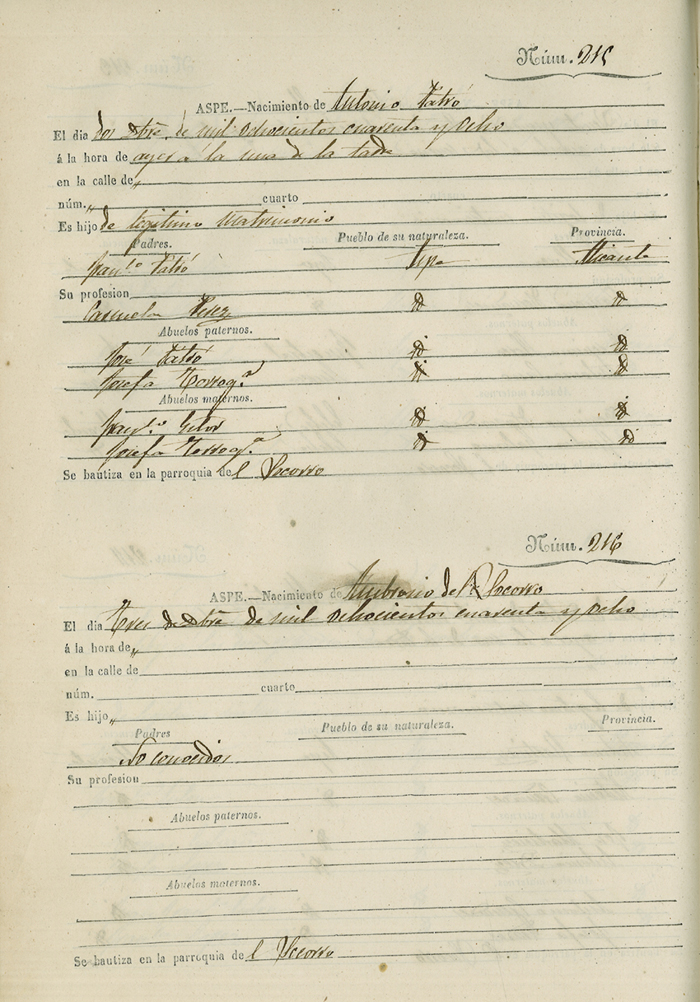 Núm. 215
ASPE.—Nacimiento de Antonio
El dia dos de mil ochocientos cuarenta y ocho
á la hora de ayer a la una de la tarde
en la calle de „
núm. „ cuarto
Es hijo de legitimo Matrimonio
Padres. Pueblo de su naturaleza. Provincia.
Aspe Alicante
Su profesion
Carmela Perez
Abuelos paternos.
José
Josefa
Abuelos maternos.
Josefa
Se bautiza en la parroquia de l Socorro
Núm. 216
ASPE.—Nacimiento de Ambrosio del Socorro
El dia Tres de de mil ochocientos cuarenta y ocho
á la hora de „
en la calle de
núm. cuarto
Es hijo „
Padres Pueblo de su naturaleza. Provincia.
No conocidos
Su profesion
Abuelos paternos.
Abuelos maternos.
Se bautiza en la parroquia de l Socorro